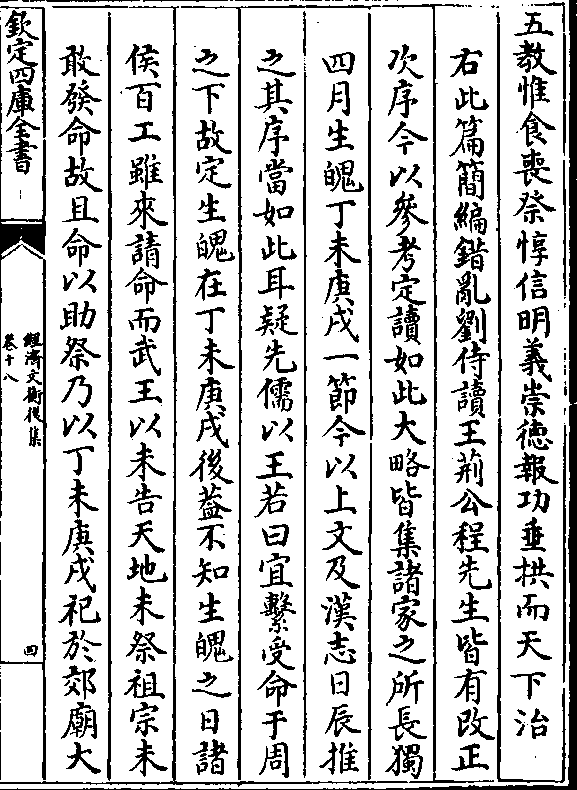 五教惟食喪祭惇信明義崇徳報功垂拱而天下治
右此篇簡編錯亂劉侍讀王荊公程先生皆有改正
次序今以參考定讀如此大略皆集諸家之所長獨
四月生魄丁未庚戌一節今以上文及漢志日辰推
之其序當如此耳疑先儒以王若曰宜繫受命于周
之下故定生魄在丁未庚戌後葢不知生魄之日諸
侯百工雖來請命而武王以未告天地未祭祖宗未
敢發命故且命以助祭乃以丁未庚戌祀於郊廟大
欽定四庫全書
經濟文衡後集
卷十八
四